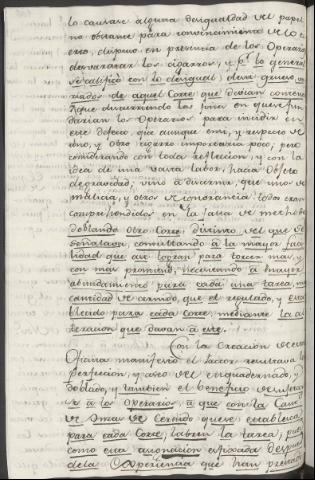 lo causase alguna desigualdad del papel
no obstante para convencimiento de lo
dispuso en presencia de los Operarios
desvaratar los cigarros, y pr. lo general
se calificó con lo desigual del grueso,
de aquel Corte que devian contener
que discurriendo los fines en que
los Operarios para incidir en
este defecto, que aunque en si, y respecto de
uno, y otro cigarro importaria poco; pero
considerando con toda reflección, y con la
idea de una vasta labor, hacia objeto
de gravedad; vino á discernir, que unos de
malicia, y otros de ignorancia todos eran
comprehendidos en la falta de
doblando otro Corte, distinto del que se
señalava, consultando á la mayor faci-
lidad que asi logran para torcer mas, y
con mas prontitud, necesitando á mayor
abundamiento para cada una tarea, mas
cantidad de cernido, que el regulado, y esta-
blecido para cada Corte, mediante la al-
teracion que davan á este.
Con la creacion de esta
Oficina manifestó el factor resultava la
perfeccion, y aseo del enquadernado, y
doblado, y tambien el beneficio de
á los Operarios, á que con la Canti-
de Onzas de Cernido que se establece
para cada Corte, labren la tarea,
como esta asignacion es fixada despues
de la Experiencia que han